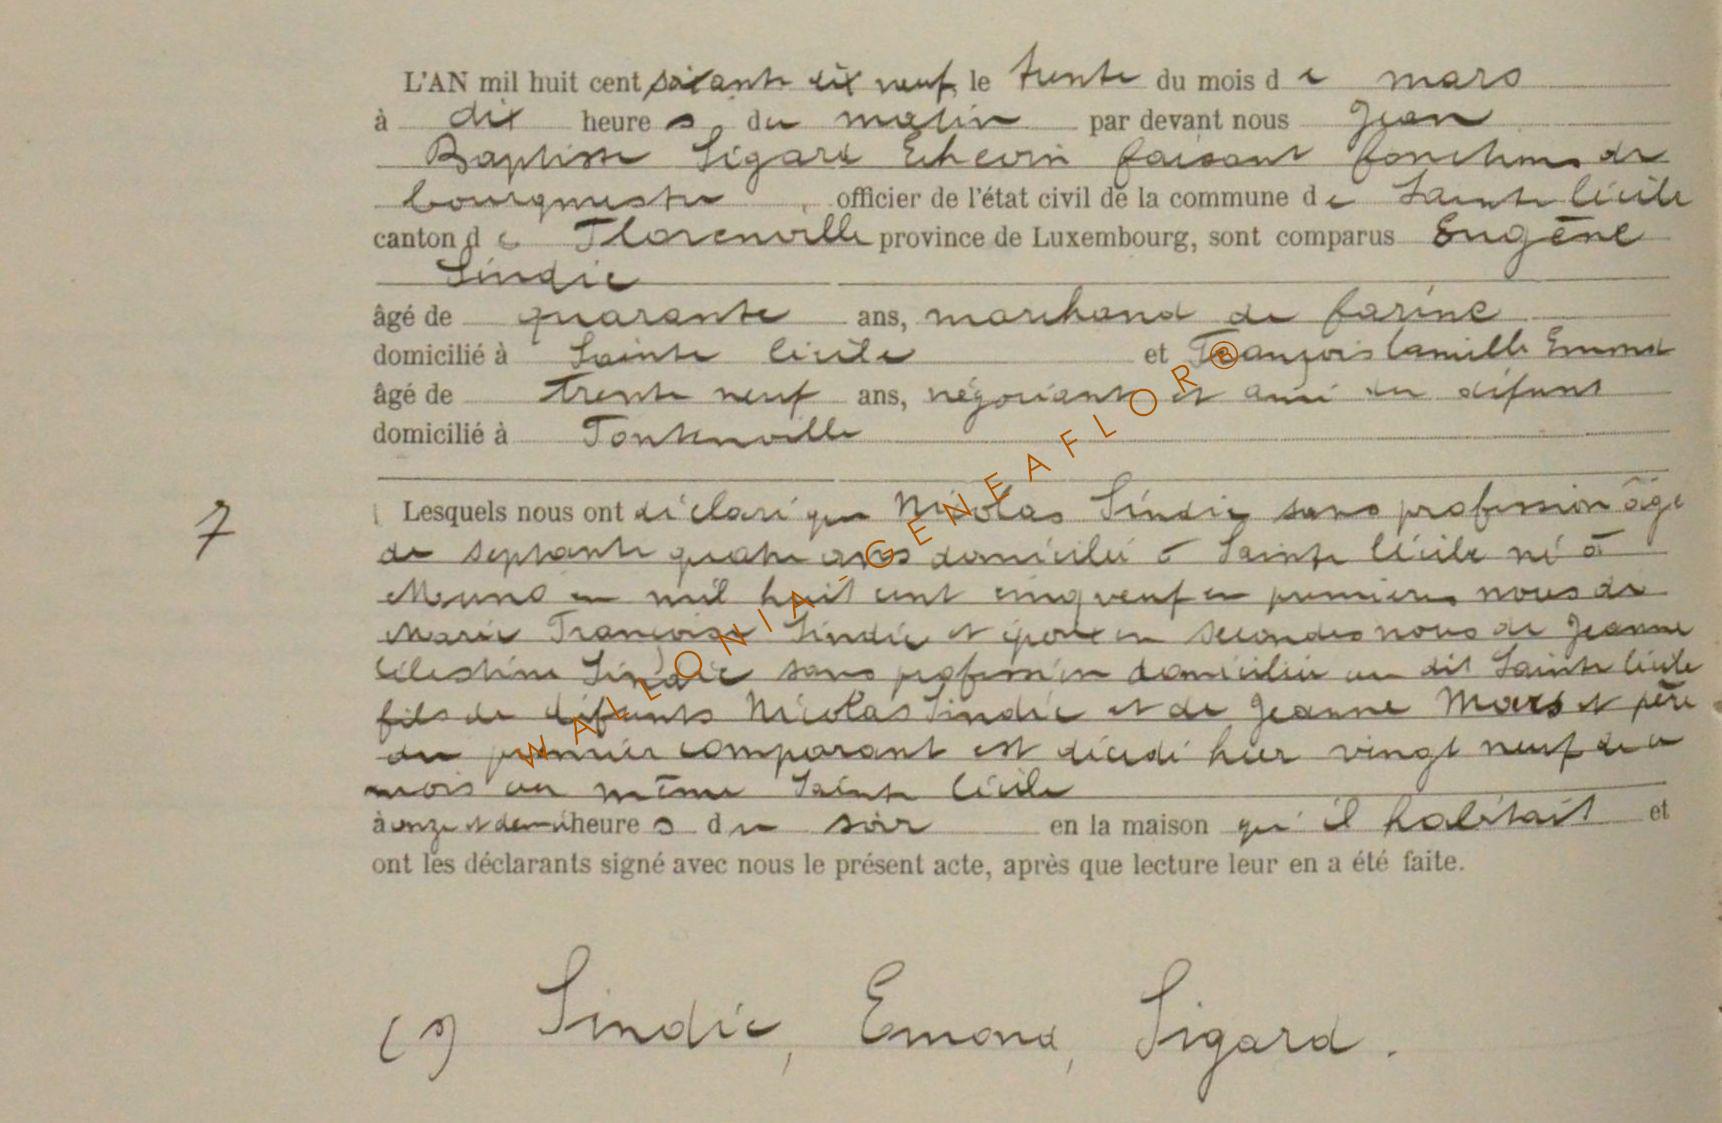 L'AN mil huit cent soixante dix neuf le trente du mois de mars
à dix heures du matin par devant nous Jean
Baptiste Sigard Echevin faisant fonctions de
bourgmestre officier de l'état civil de la commune de Sainte Cécile
canton de Florenville province de Luxembourg, sont comparus Eugène
Sindic
âgé de quarante ans, marchand de farine
domicilié à Sainte Cécile et François Camille Emond
âgé de trente neuf ans, négociant et ami du défunt
domicilié à Fontenoille
7 Lesquels nous ont déclaré que Nicolas Sindic sans profession âgé
de septante quatre ans domicilié à Sainte Cécile né à
Muno en mil huit cent cinq veuf en premières noces de
Marie Françoise Sindic et époux en secondes noces de Jeanne
Célestine Sindic sans profession domiciliée au dit Sainte Cécile
fils de défunts Nicolas Sindic et de Jeanne Mars et père
du premier comparant est décédé hier vingt neuf de ce
mois au même Sainte Cécile
à onze et demi heures du soir en la maison qu'il habitait et
ont les déclarants signé avec nous le présent acte, après que lecture leur en a été faite.
(s) Sindic, Emond, Sigard.
WALLONIA-GENEAFLOR®